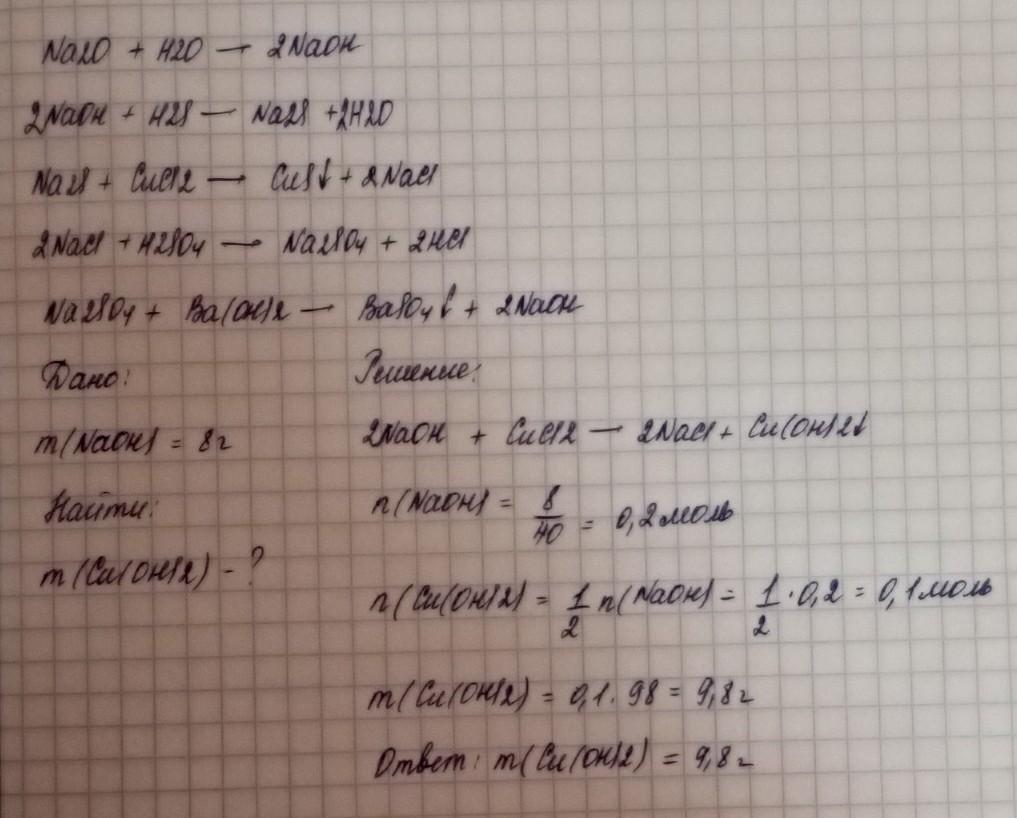 Na2O + H2O → 2NaOH
2NaOH + H2S — Na2S + 2H2O
Na2S + CuCl2 → CuS↓ + 2NaCl
2NaCl + H2SO4 → Na2SO4 + 2HCl
Na2SO4 + Ba(OH)2 — BaSO4↓ + 2NaOH
Дано: Решение:
m(NaOH) = 8г 2NaOH + CuCl2 — 2NaCl + Cu(OH)2↓
Найти: n(NaOH) = 8/40 = 0,2моль
m(Cu(OH)2) - ? n(Cu(OH)2) = 1/2 n(NaOH) = 1/2 · 0,2 = 0,1моль
m(Cu(OH)2) = 0,1 · 98 = 9,8г
Ответ: m(Cu(OH)2) = 9,8г